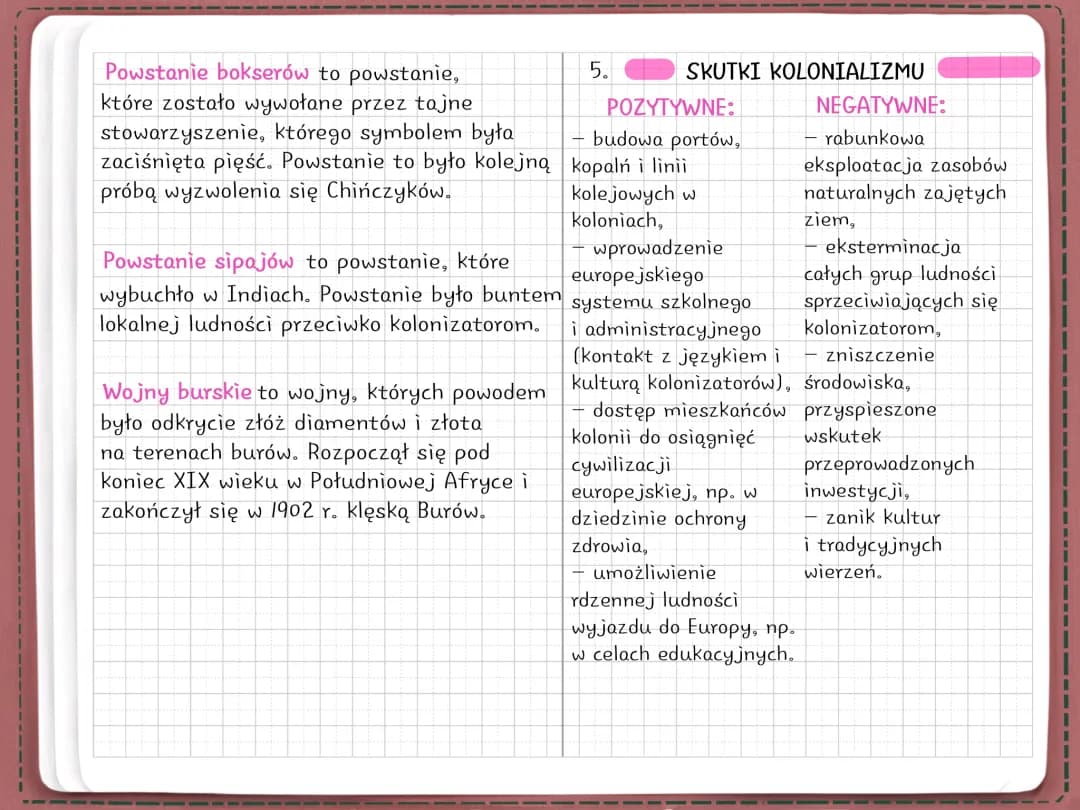 Powstanie bokserów to powstanie,
które zostało wywołane przez tajne
stowarzyszenie, którego symbolem była
zaciśnięta pięść. Powstanie to było kolejną
próbą wyzwolenia się Chińczyków.
Powstanie sipajów to powstanie, które
wybuchło w Indiach. Powstanie było buntem
lokalnej ludności przeciwko kolonizatorom.
Wojny burskie to wojny, których powodem
było odkrycie złóż diamentów i złota
na terenach burów. Rozpoczął się pod
koniec XIX wieku w Południowej Afryce i
zakończył się w 1902 r. klęską Burów.
5. SKUTKI KOLONIALIZMU
POZYTYWNE:
– budowa portów,
kopalń i linii
kolejowych w
koloniach,
– wprowadzenie
europejskiego
systemu szkolnego
i administracyjnego
(kontakt z językiem i
kulturą kolonizatorów),
– dostęp mieszkańców
kolonii do osiągnięć
cywilizacji
europejskiej, np. w
dziedzinie ochrony
zdrowia,
– umożliwienie
rdzennej ludności
wyjazdu do Europy, np.
w celach edukacyjnych.
NEGATYWNE:
– rabunkowa
eksploatacja zasobów
naturalnych zajętych
ziem,
– eksterminacja
całych grup ludności
sprzeciwiających się
kolonizatorom,
– zniszczenie
środowiska,
przyspieszone
wskutek
przeprowadzonych
inwestycji,
– zanik kultur
i tradycyjnych
wierzeń.